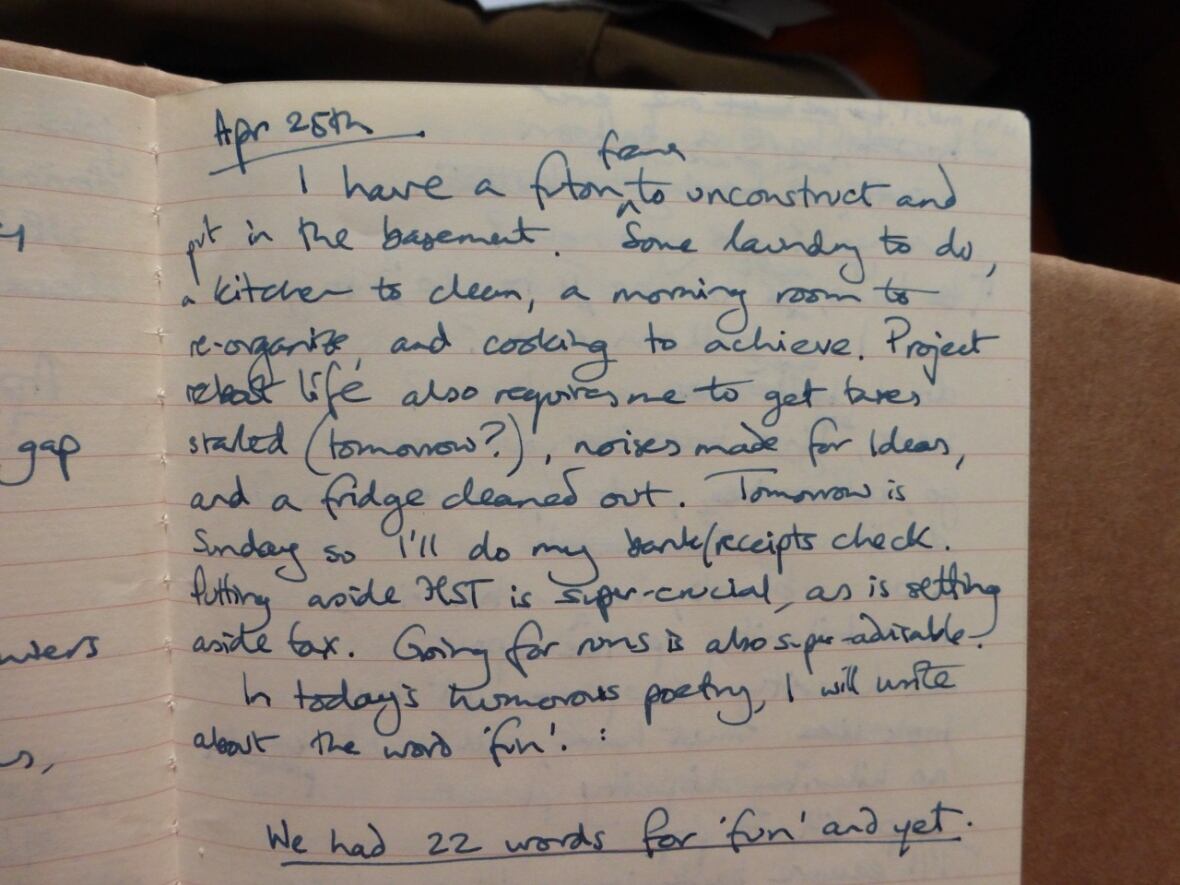 y
gap
s,
Apr 25th.
frame
I have a futon ^ to unconstruct and
put in the basement. Some laundry to do,
a kitchen to clean, a morning room to
re-organize, and cooking to achieve. Project
reboot life also requires me to get taxes
started (tomorrow?), noises made for Ideas,
and a fridge cleaned out. Tomorrow is
Sunday so I'll do my bank/receipts check.
Putting aside HST is super-crucial, as is setting
aside tax. Going for runs is also super-advisable.
In today's humorous poetry, I will write
about the word 'fun'. :
We had 22 words for 'fun' and yet.